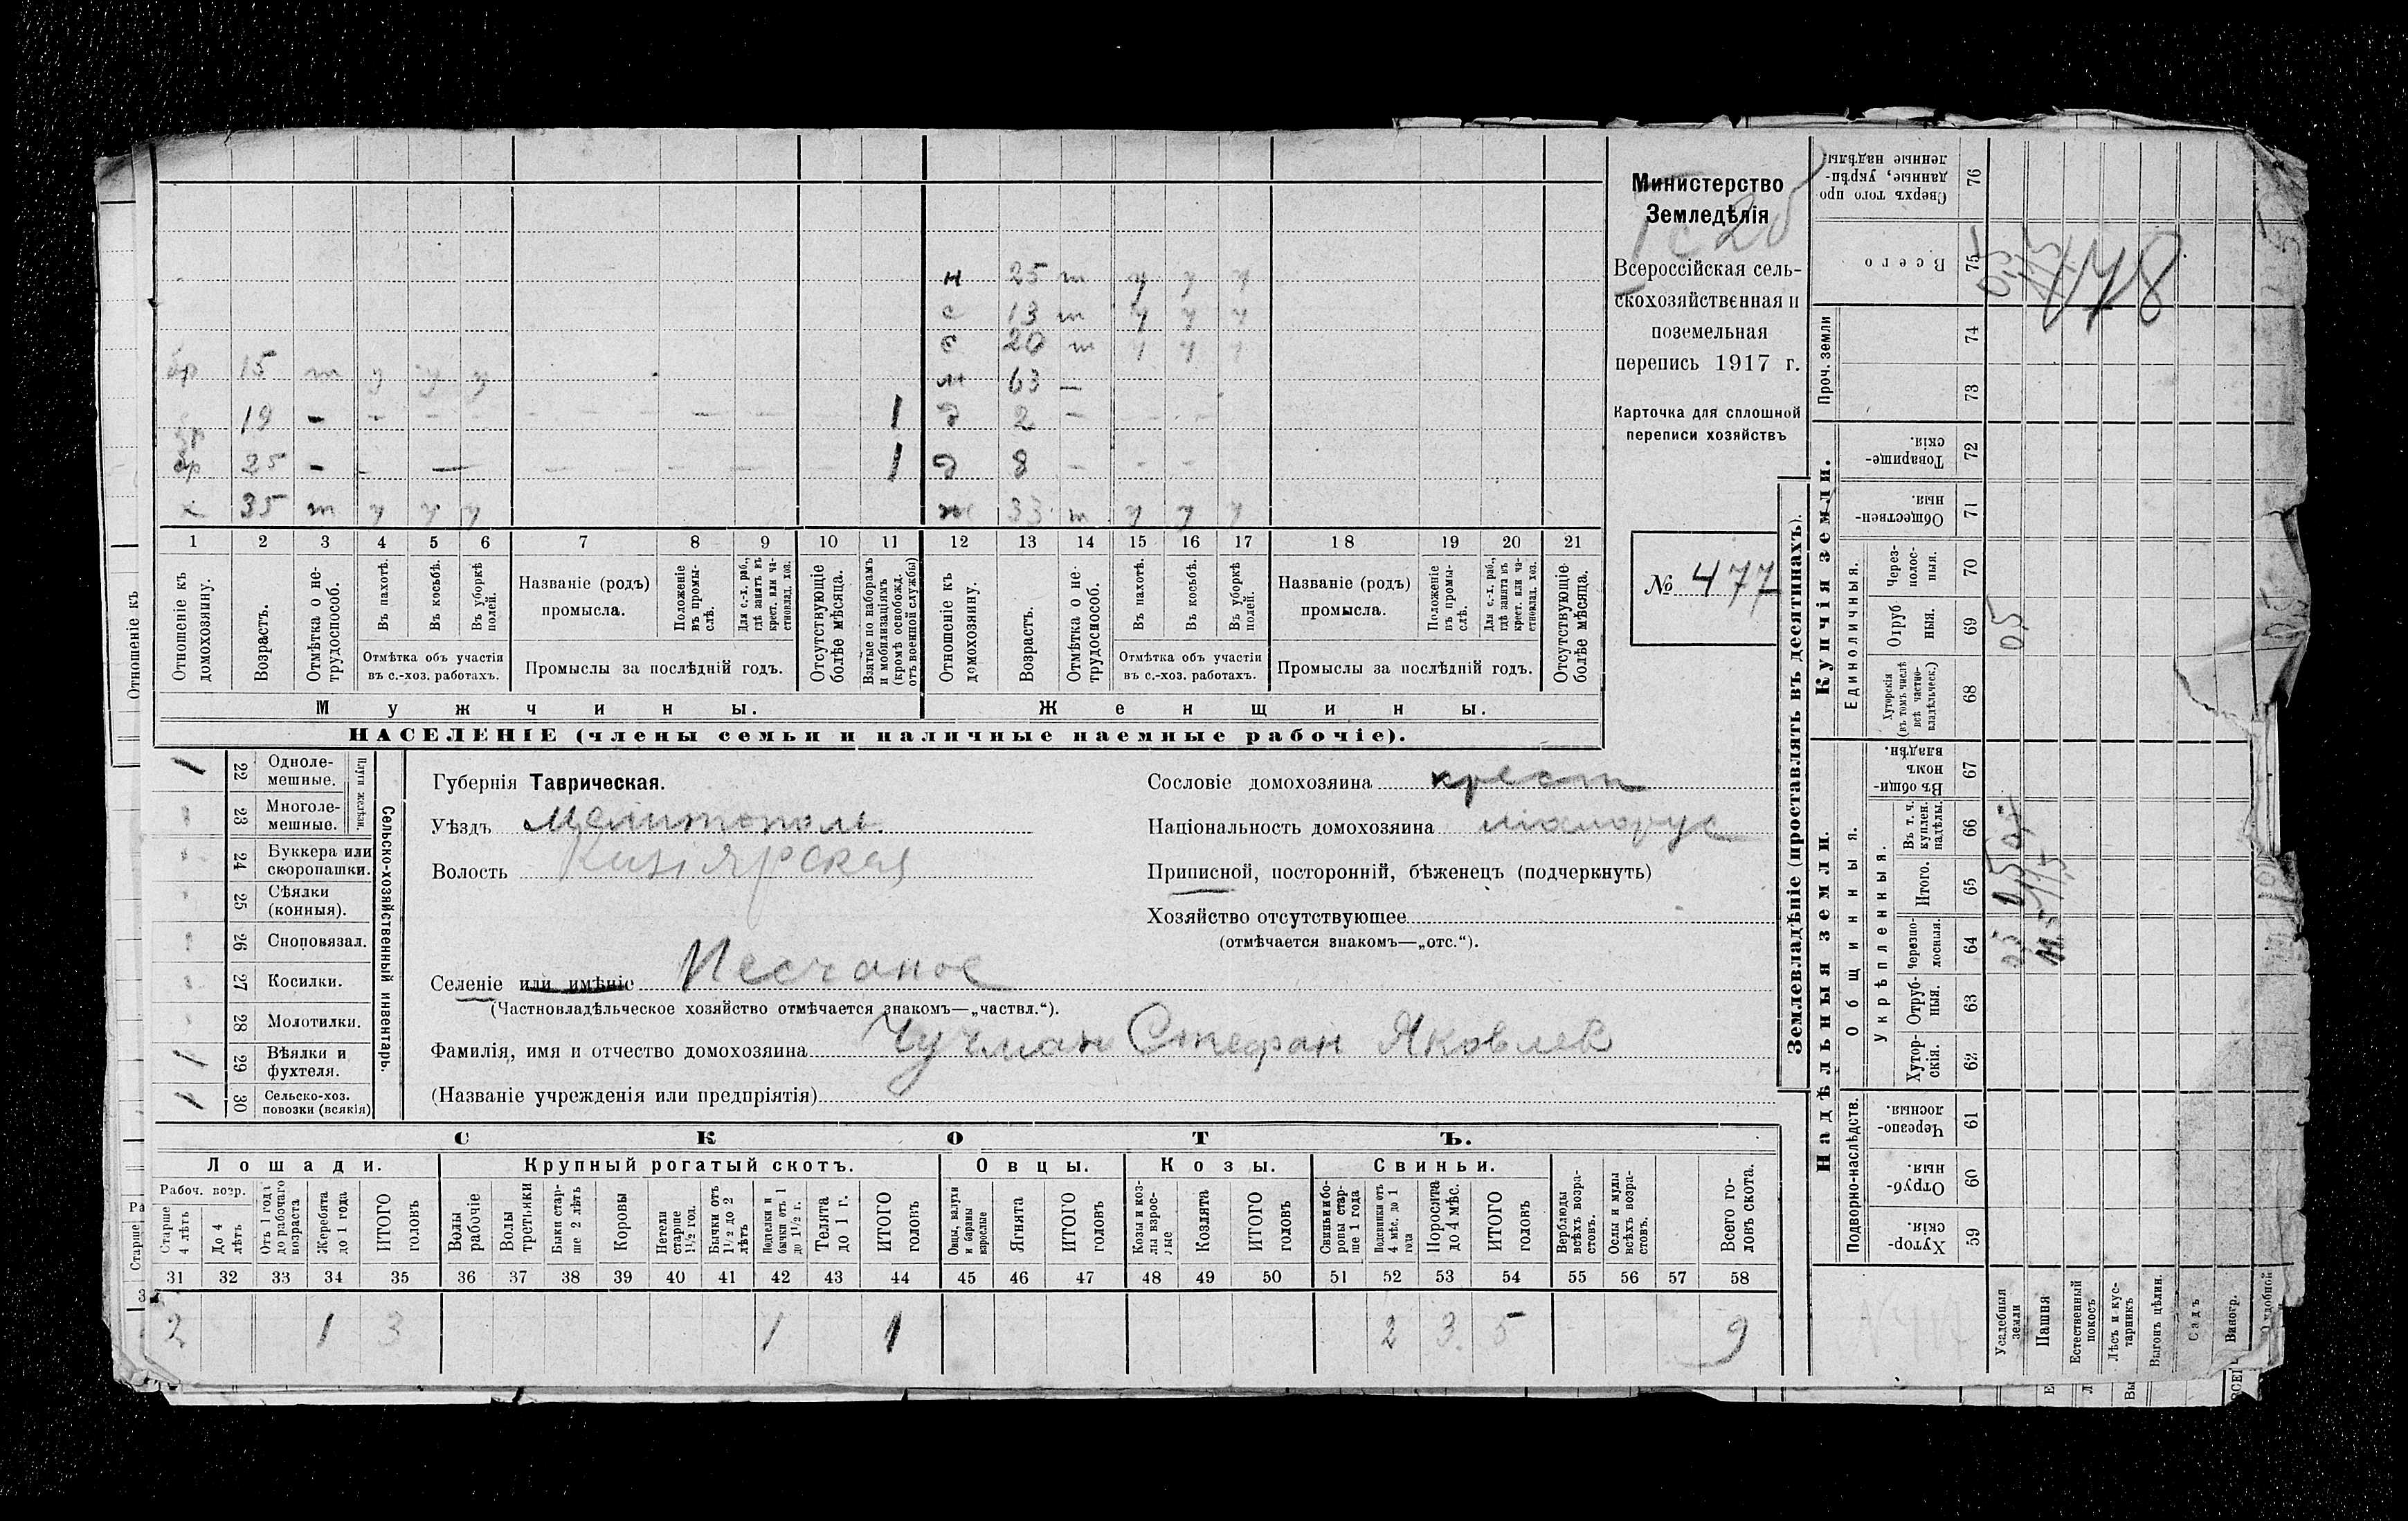 н 25 т у у у
с 13 т у у у
с 20 т у у у
бр 15 т у у у м 63 —
бр 19 - - - - 1 д 2 —
бр 25 - - — 1 д 8 —
х 35 т у у у ж 33 т у у у
1 2 3 4 5 6 7 8 9 10 11 12 13 14 15 16 17 18 19 20 21
Отношеніе къ домохозяину.
Возрастъ.
Отмѣтка о не-трудоспособ.
Въ пахотѣ.
Въ косьбѣ.
Въ уборкѣ полей.
Отмѣтка объ участіи въ с.-хоз. работахъ.
Названіе (родъ) промысла.
Положеніе въ промы-слѣ.
Для с.-х. раб., гдѣ занятъ въ крест. или ча-стновлад. хоз.
Промыслы за послѣдній годъ.
Отсутствующіе болѣе мѣсяца.
Взятые по наборамъ и мобилизаціямъ (кромѣ освобожд. отъ военной службы)
Отношеніе къ домохозяину.
Возрастъ.
Отмѣтка о не-трудоспособ.
Въ пахотѣ.
Въ косьбѣ.
Въ уборкѣ полей.
Отмѣтка объ участіи въ с.-хоз. работахъ.
Названіе (родъ) промысла.
Положеніе въ промы-слѣ.
Для с.-х. раб., гдѣ занята въ крест. или ча-стновлад. хоз.
Промыслы за послѣдній годъ.
Отсутствующіе болѣе мѣсяца.
Мужчины. Женщины.
НАСЕЛЕНІЕ (члены семьи и наличные наемные рабочіе).
Министерство
Земледѣлія
Всероссійская сель-
скохозяйственная и
поземельная
перепись 1917 г.
Карточка для сплошной
переписи хозяйствъ
№ 477
Сельско-хозяйственный инвентарь.
Плуги желѣзн.
1 22 Одноле-мешные.
23 Многоле-мешные.
24 Буккера или скоропашки.
25 Сѣялки (конныя).
26 Сноповязал.
27 Косилки.
28 Молотилки.
1 29 Вѣялки и фухтеля.
1 30 Сельско-хоз. повозки (всякія)
Губернія Таврическая.
Уѣздъ Мелитополь.
Волость Кизіярская
Селеніе или имѣніе Песчаное
(Частновладѣльческое хозяйство отмѣчается знакомъ—„частвл.“).
Фамилія, имя и отчество домохозяина Чучман Стефан Яковлев
(Названіе учрежденія или предпріятія)
Сословіе домохозяина крест
Національность домохозяина малорус
Приписной, посторонній, бѣженецъ (подчеркнуть)
Хозяйство отсутствующее
(отмѣчается знакомъ—„отс.“).
СКОТЪ.
Лошади. Крупный рогатый скотъ. Овцы. Козы. Свиньи.
Рабоч. возр.
Старше 4 лѣтъ
До 4 лѣтъ
Отъ 1 года до рабочаго возраста
Жеребята до 1 года
ИТОГО головъ
Волы рабочіе
Волы третьяки
Быки стар-ше 2 лѣтъ
Коровы
Нетели старше 1½ год.
Бычки отъ 1½ до 2 лѣтъ
Подтелки и бычки отъ 1 до 1½ г.
Телята до 1 г.
ИТОГО головъ
Овцы, валухи и бараны взрослые
Ягнята
ИТОГО головъ
Козы и коз-лы взрос-лые
Козлята
ИТОГО головъ
Свиньи и бо-ровы стар-ше 1 года
Подсвинки отъ 4 мѣс. до 1 года
Поросята до 4 мѣс.
ИТОГО головъ
Верблюды всѣхъ возра-стовъ.
Ослы и мулы всѣхъ возра-стовъ.
Всего го-ловъ скота.
31 32 33 34 35 36 37 38 39 40 41 42 43 44 45 46 47 48 49 50 51 52 53 54 55 56 57 58
2 1 3 1 1 2 3 5 9
Землевладѣніе (проставлять въ десятинахъ).
Купчія земли.
Надѣльныя земли.
Сверхъ того про данные, укрѣп-ленные надѣлы. 76
Всего 75
478
Проч. земли 74 73
Товарище-скія. 72
Обществен-ныя. 71
Единоличныя.
Через-полос-ныя. 70
Отруб ныя. 69
05
Хуторскія (въ томъ числѣ всѣ частно-владѣльческ.) 68
Въ общи-номъ владѣн. 67
Общинныя.
Укрѣпленныя.
Въ т. ч. куплен. надѣлы. 66
Итого. 65
Черезпо-лосныя. 64
Отруб-ныя. 63
Хутор-скія. 62
Подворно-наслѣдств.
Черезпо-лосныя. 61
Отруб-ныя. 60
Хутор-скія. 59
Усадебныя земли
Пашня
Естественный покосъ
Лѣсъ и кус-тарникъ
Выгонъ цѣлин.
Садъ
Виногр.
Отношеніе къ